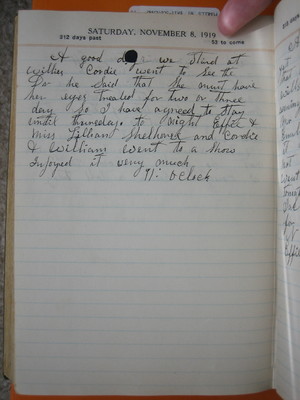 SATURDAY, NOVEMBER 8, 1919
312 days past 53 to come
A good day we Staid at
Willies Cordie went to See the
Dr he Said that She must have
her eyes Treated for two or three
day So I have agreed to Stay
until thursday. to night Effie &
Miss Lilliant Shelhouse and Cordie
& William went to a Show
injoyed it very much
9½ oclock